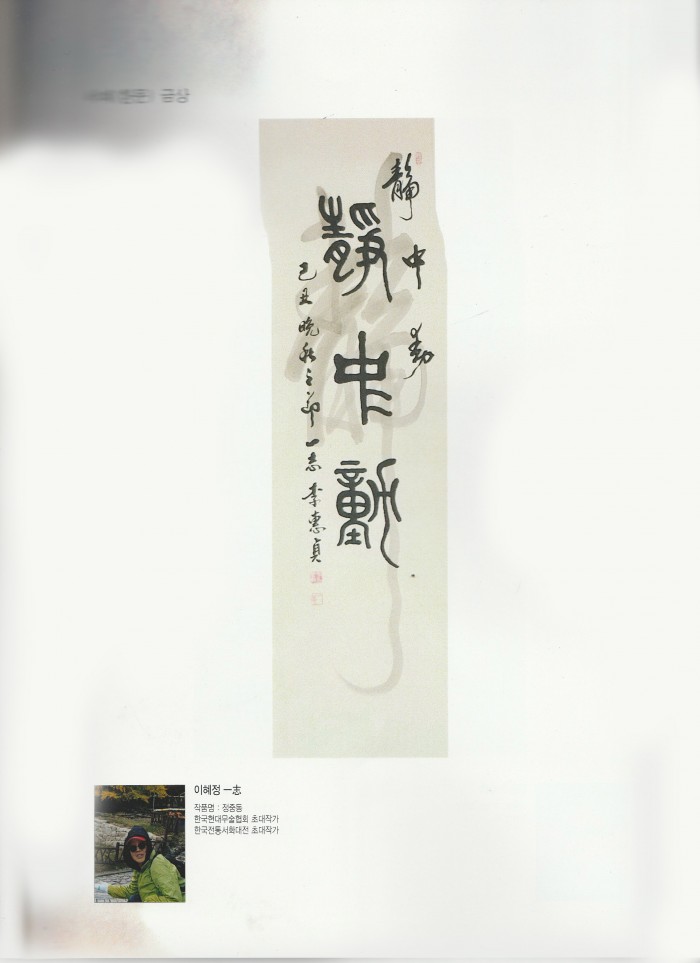 금상
靜中動
靜中動
己丑晩秋之節 一志 李惠貞
이혜정 一志
작품명 : 정중동
한국현대무술협회 초대작가
한국전통서화대전 초대작가